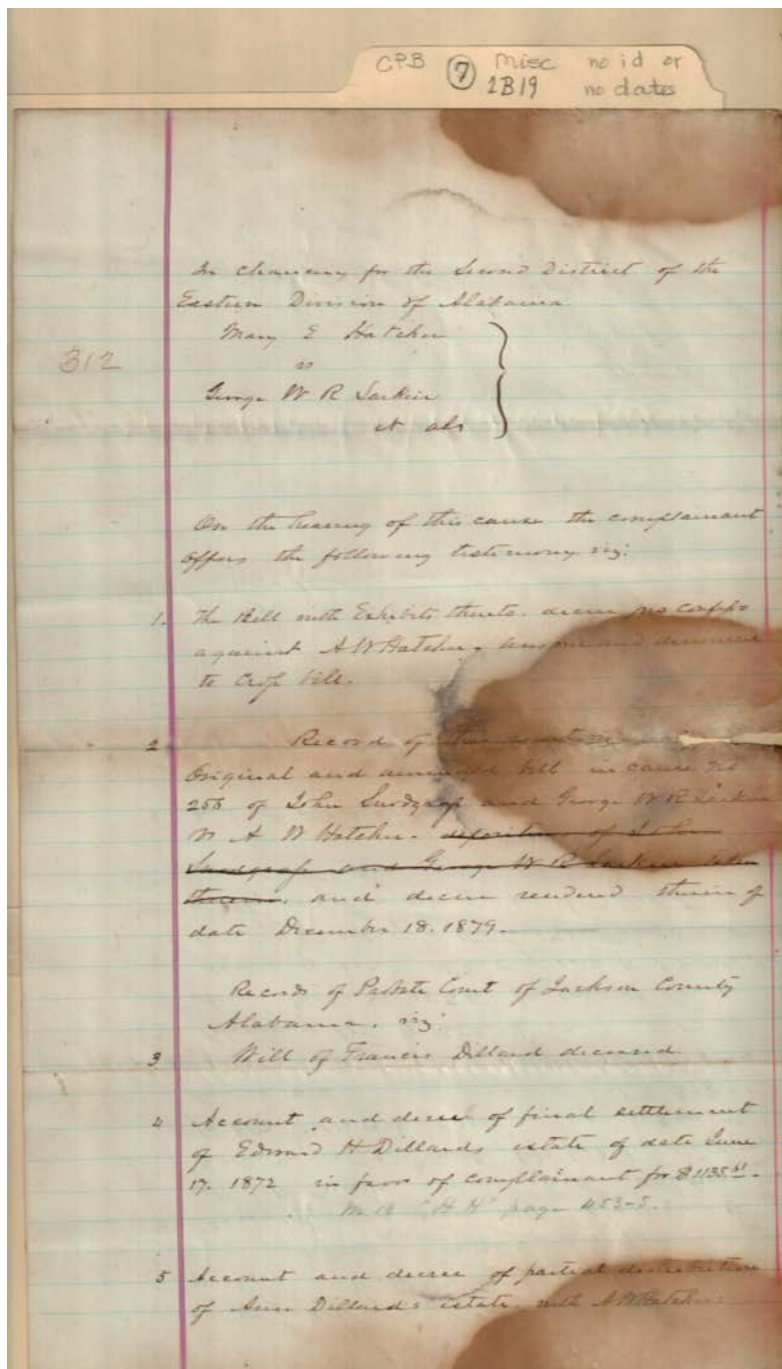 CPB ⑦ Misc no id or
2B19 no dates
In chancery for the Second District of the
Eastern Division of Alabama
Mary E Hatcher
312
vs
George W R Larkin
et als
On the hearing of this cause the complainant
offers the following testimony viz:
1. The Bill with Exhibits thereto. decree pro confesso
against A W Hatcher, answer and demurrer
to Cross bill.
2 Record of this
Original and amended bill in cause No
256 of John Snodgrass and George W R Larkin
vs A W Hatcher. deposition of John
Snodgrass and George W R Larkin taken
therein, and decree rendered therein of
date December 18. 1879.
Records of Probate Court of Jackson County
Alabama, viz:
3 Will of Francis Dillard deceased
4 Account and decree of final settlement
of Edward H Dillards estate of date June
17. 1872 in favor of complainant for $1135.
"H H" page 453-5.
5 Account and decree of partial distribution
of Ann Dillard's estate, with A W Hatcher